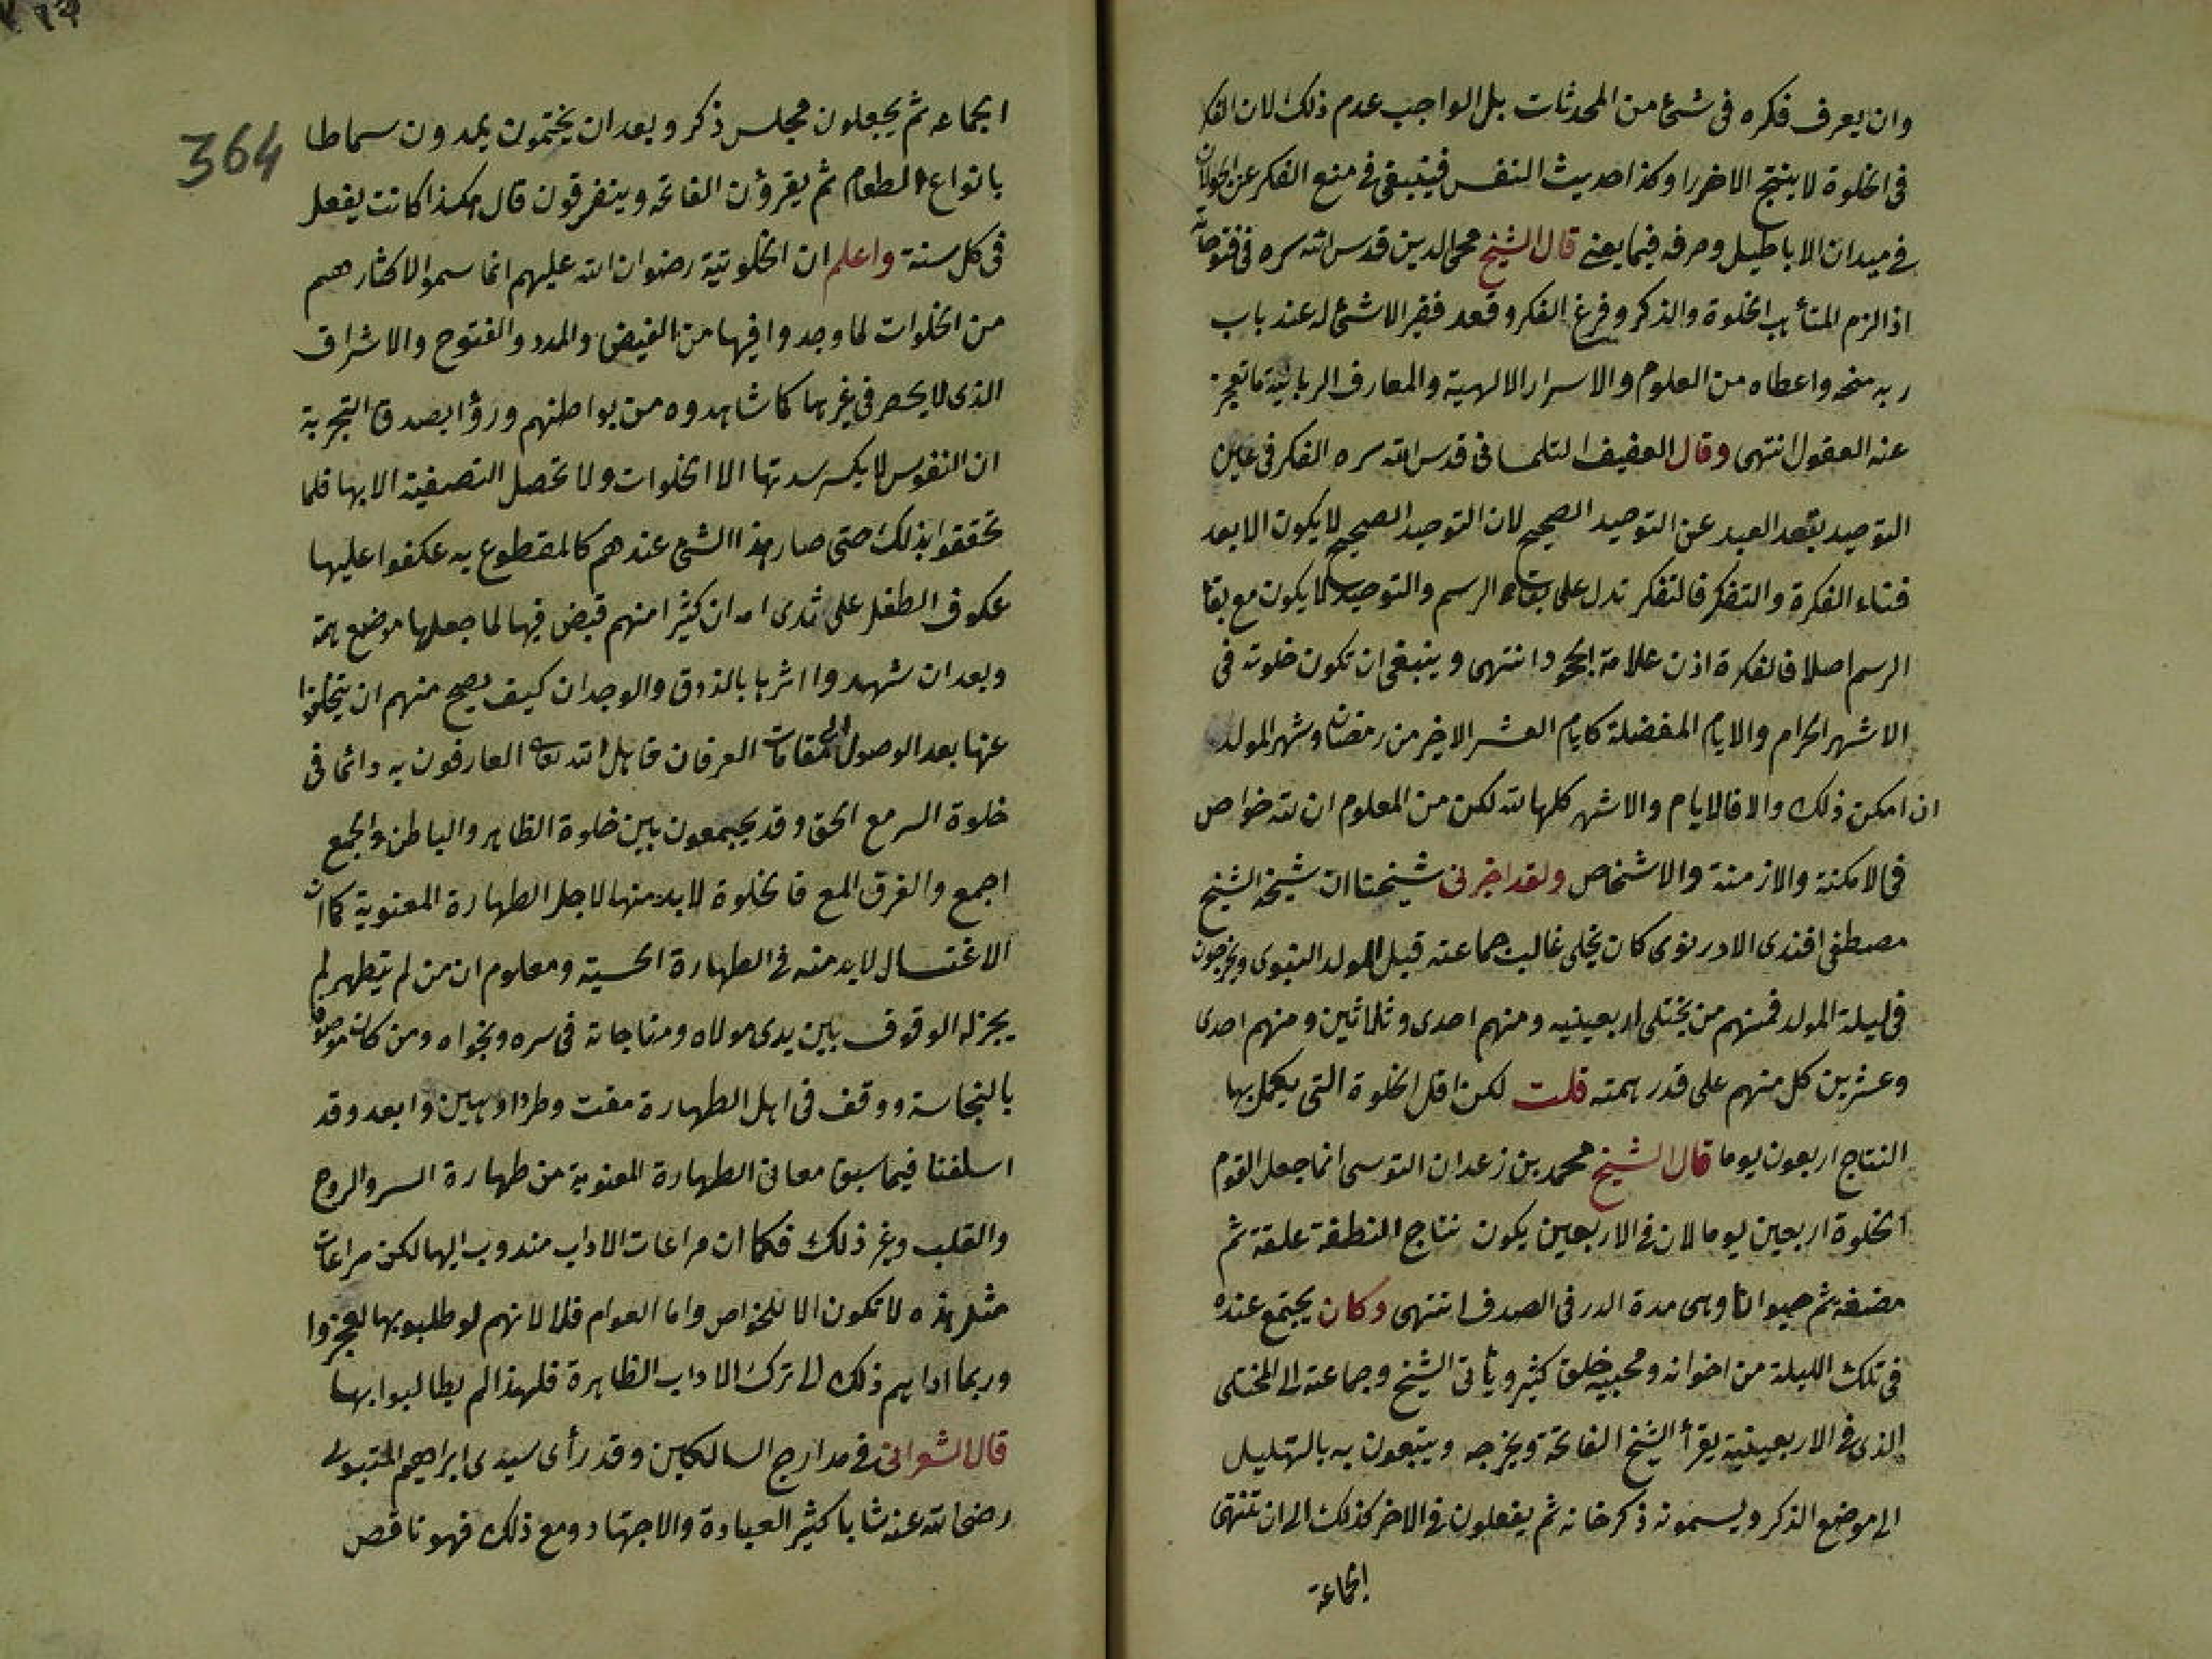 وان يعرف فكره فى شئ من المحدثات بل الواجب عدم ذلك لان الفكر
فى الخلوة لا ينتج الا ضررا وكذا حديث النفس فينبغى فى منع الفكر عن الجولان
فى ميدان الاباطيل وصرفه فيما يعنى قال الشيخ محى الدين قدس الله سره فى فتوحاته
اذا لزم المتأهب الخلوة والذكر وفرغ الفكر وقعد فقيرا لا شئ له عند باب
ربه منحه واعطاه من العلوم والاسرار الالهية والمعارف الربانية ما تعجز
عنه العقول انتهى وقال العفيف التلمسانى قدس الله سره الفكر فى عاين
التوحيد يقعد العبد عن التوحيد الصحيح لان التوحيد الصحيح لا يكون الا بعد
فناء الفكرة والتفكر فالتفكر تدل على بقاء الرسم والتوحيد لا يكون مع بقا
الرسم اصلا فالفكرة اذن علامة الجحود انتهى وينبغى ان تكون خلوته فى
الاشهر الحرام والايام المفضلة كايام العشر الاخير من رمضان وشهر المولد
ان امكن ذلك والا فالايام والاشهر كلها لله لكن من المعلوم ان لله خواص
فى الامكنة والازمنة والاشخاص ولقد اخبرنى شيخنا ان شيخه الشيخ
مصطفى افندى الادرنوى كان يخلى غالب جماعته قبل المولد النبوى ويخرجون
فى ليلة المولد فمنهم من يختلى اربعينيه ومنهم احدى وثلاثين ومنهم احدى
وعشرين كل منهم على قدر همته قلت لكن اقل الخلوة التى يكمل بها
النتاج اربعون يوما قال الشيخ محمد بن زعدان التوسى انما جعل القوم
الخلوة اربعين يوما لان فى الاربعين يكون نتاج النطفة علقة ثم
مضغة ثم حيوانا وهى مدة الدر فى الصدف انتهى وكان يجتمع عنده
فى تلك الليلة من اخوانه ومحبيه خلق كثير ويأتى الشيخ وجماعته الى المختلى
الذى فى الاربعينية يقرأ الشيخ الفاتحة ويخرجه ويتبعون به بالتهليل
الى موضع الذكر ويسمونه ذكر خانه ثم يفعلون فى الاخر كذلك الى ان تنتهى
الجماعة
364
الجماعه ثم يجعلون مجلس ذكر وبعد ان يختمون يمدون سماطا
بانواع الطعام ثم يقرؤن الفاتحه ويتفرقون قال هكذا كانت يفعل
فى كل سنة واعلم ان الخلوتية رضوان الله عليهم انما سموا لاكثارهم
من الخلوات لما وجدوا فيها من الفيض والمدد والفتوح والاشراق
الذى لا يحصر فى غيرها كما شاهدوه من بواطنهم ورؤا بصدق التجربة
ان النفوس لا يكسر سدتها الا الخلوات ولا تحصل التصفية الا بها فلما
تحققوا بذلك حتى صار هذا الشئ عندهم كالمقطوع به عكفوا عليها
عكوف الطفل على ثدى امه ان كثيرا منهم قبض فيها لما جعلها موضع همه
وبعد ان شهدوا اثرها بالذوق والوجدان كيف يصح منهم ان يتخلوا
عنها بعد الوصول الى مقامات العرفان فاهل الله تعالى العارفون به دائما فى
خلوة السر مع الحق وقد يجمعون بين خلوة الظاهر والباطن والجمع
اجمع والفرق المع فالخلوة لابد منها لاجل الطهارة المعنوية كما ان
الاغتسال لابد منه فى الطهارة الحسية ومعلوم ان من لم يتطهر لم
يجز له الوقوف بين يدى مولاه ومناجاته فى سره ونجواه ومن كان موصوفا
بالنجاسة ووقف فى اهل الطهارة مقت وطرد اوهين وابعد وقد
اسلفنا فيما سبق معانى الطهارة المعنوية من طهارة السر والروح
والقلب وغير ذلك فكما ان مراعات الاداب مندوب اليها لكن مراعات
مثل هذه لا تكون الا للخواص واما العوام فلا لانهم لو طلبوا بها لعجزوا
وربما اداهم ذلك الى ترك الاداب الظاهرة فلهذا لم يطالبوا بها
قال الشعرانى فى مدارج السالكين وقد رأى سيدى ابراهيم المتبولى
رضى الله عنه شابا كثير العبادة والاجتهاد ومع ذلك فهو ناقص